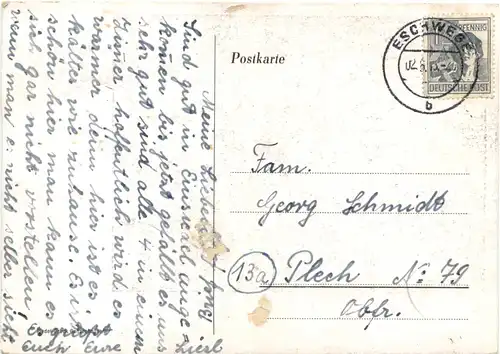 Meine Lieben
Sind gut in Einsiedl ange
komen bis jetzt gefällt es uns
sehr gut sind alle 4 in einem
Zimer, hoffentlich wird es
wärmer denn hier ist es
kälter wie zuhause. Es ist
schön hier man kann es
sich gar nicht vorstellen
wenn man es nicht selber sieht
Es grüßt
Euch Eure Liesl
Postkarte
ESCHWEGE
b
PFENNIG
DEUTSCHE POST
Fam.
Georg Schmidt
13a Plech No 79
Obfr.